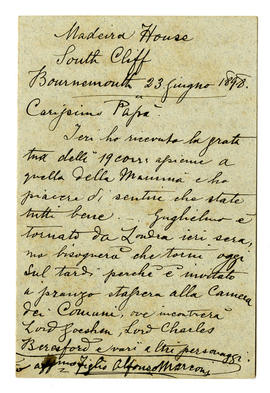 Madeira House
South Cliff
Bournemouth 23 Giugno 1898.
Carissimo Papà
Ieri ho ricevuto la grata
tua delli 19 corr. assieme a
quella della Mamma e ho
piacere di sentire che state
tutti bene. Guglielmo è
tornato da Londra ieri sera,
ma bisognerà che torni oggi
sul tardi perchè è invitato
a pranzo stasera alla Camera
dei Comuni, ove incontrerà
Lord Goschen, Lord Charles
Beresford e vari altri personaggi.
affmo figlio Alfonso Marconi